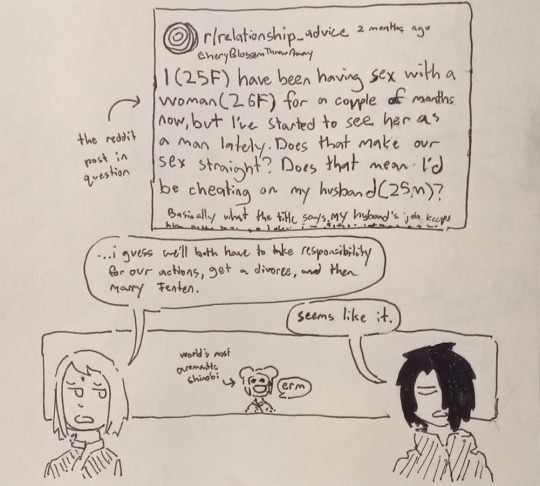 r/relationship_advice 2 months ago
CheryBlossomThrowAway
I (25F) have been having sex with a
woman (26F) for a couple of months
now, but I've started to see her as
a man lately. Does that make our
sex straight? Does that mean I'd
be cheating on my husband (25,m)?
Basically what the title says, My husband's job keeps
the reddit
post in
question
...i guess we'll both have to take responsibility
for our actions, get a divorce, and then
marry Tenten.
seems like it.
world's most
aromantic
shinobi
erm